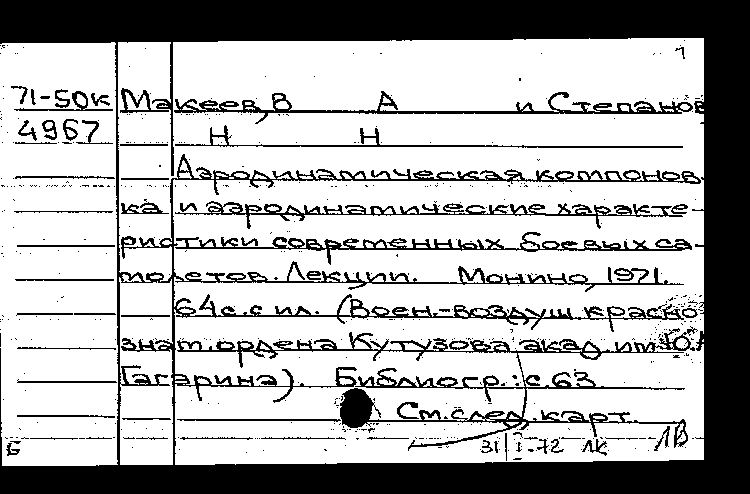 1
71-50к Макеев, В А и Степанов
4967 Н Н
Аэродинамическая компонов-
ка и аэродинамические характе-
ристики современных боевых са-
молетов. Лекции. Монино, 1971.
64 с. с ил. (Воен.-воздуш. красно-
знам. ордена Кутузова акад. им. Ю. А
Гагарина). Библиогр.: с. 63.
См. след. карт.
Б 31 I-72 ЛК ЛВ